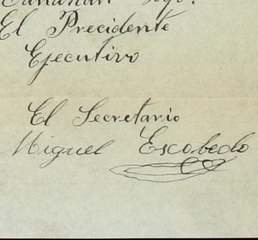 El Precidente
Ejecutivo
El Secretario
Miguel Escobedo